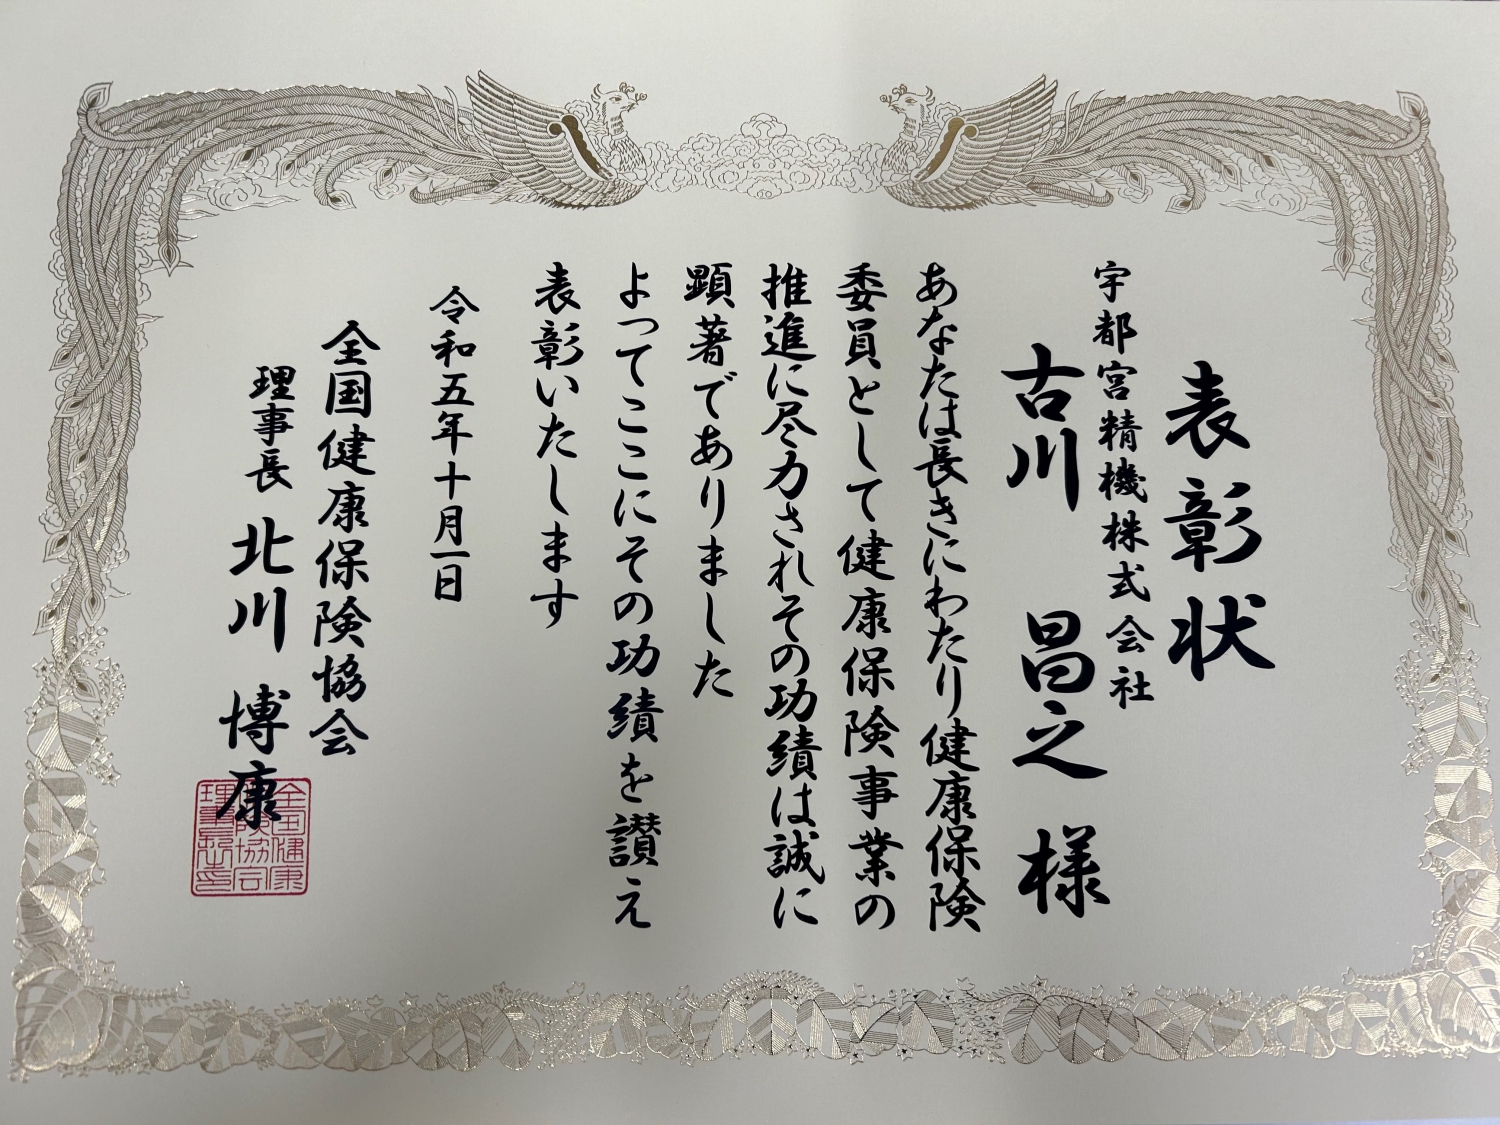 表彰状
宇都宮精機株式会社
古川 昌之 様
あなたは長きにわたり健康保険
委員として健康保険事業の
推進に尽力されその功績は誠に
顕著でありました
よってここにその功績を讃え
表彰いたします
令和五年十月一日
全国健康保険協会
理事長 北川 博康
全国健康
保険協会
理事長之印